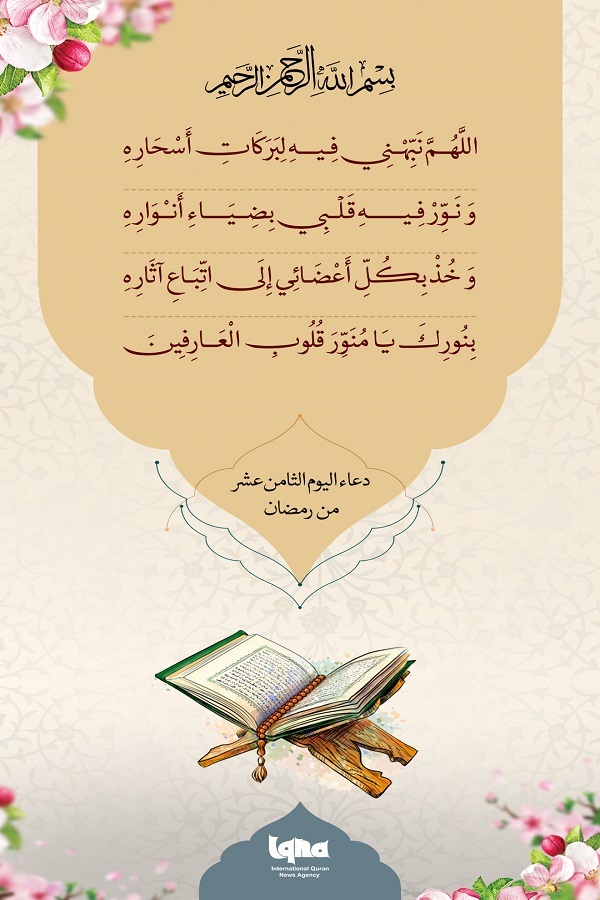 بِسْمِ اللَّهِ الرَّحْمٰنِ الرَّحِيمِ
اللَّهُمَّ نَبِّهْنِي فِيهِ لِبَرَكَاتِ أَسْحَارِهِ
وَ نَوِّرْ فِيهِ قَلْبِي بِضِيَاءِ أَنْوَارِهِ
وَ خُذْ بِكُلِّ أَعْضَائِي إِلَى اتِّبَاعِ آثَارِهِ
بِنُورِكَ يَا مُنَوِّرَ قُلُوبِ الْعَارِفِينَ
دعاء اليوم الثامن عشر
من رمضان
Iqna
International Quran
News Agency